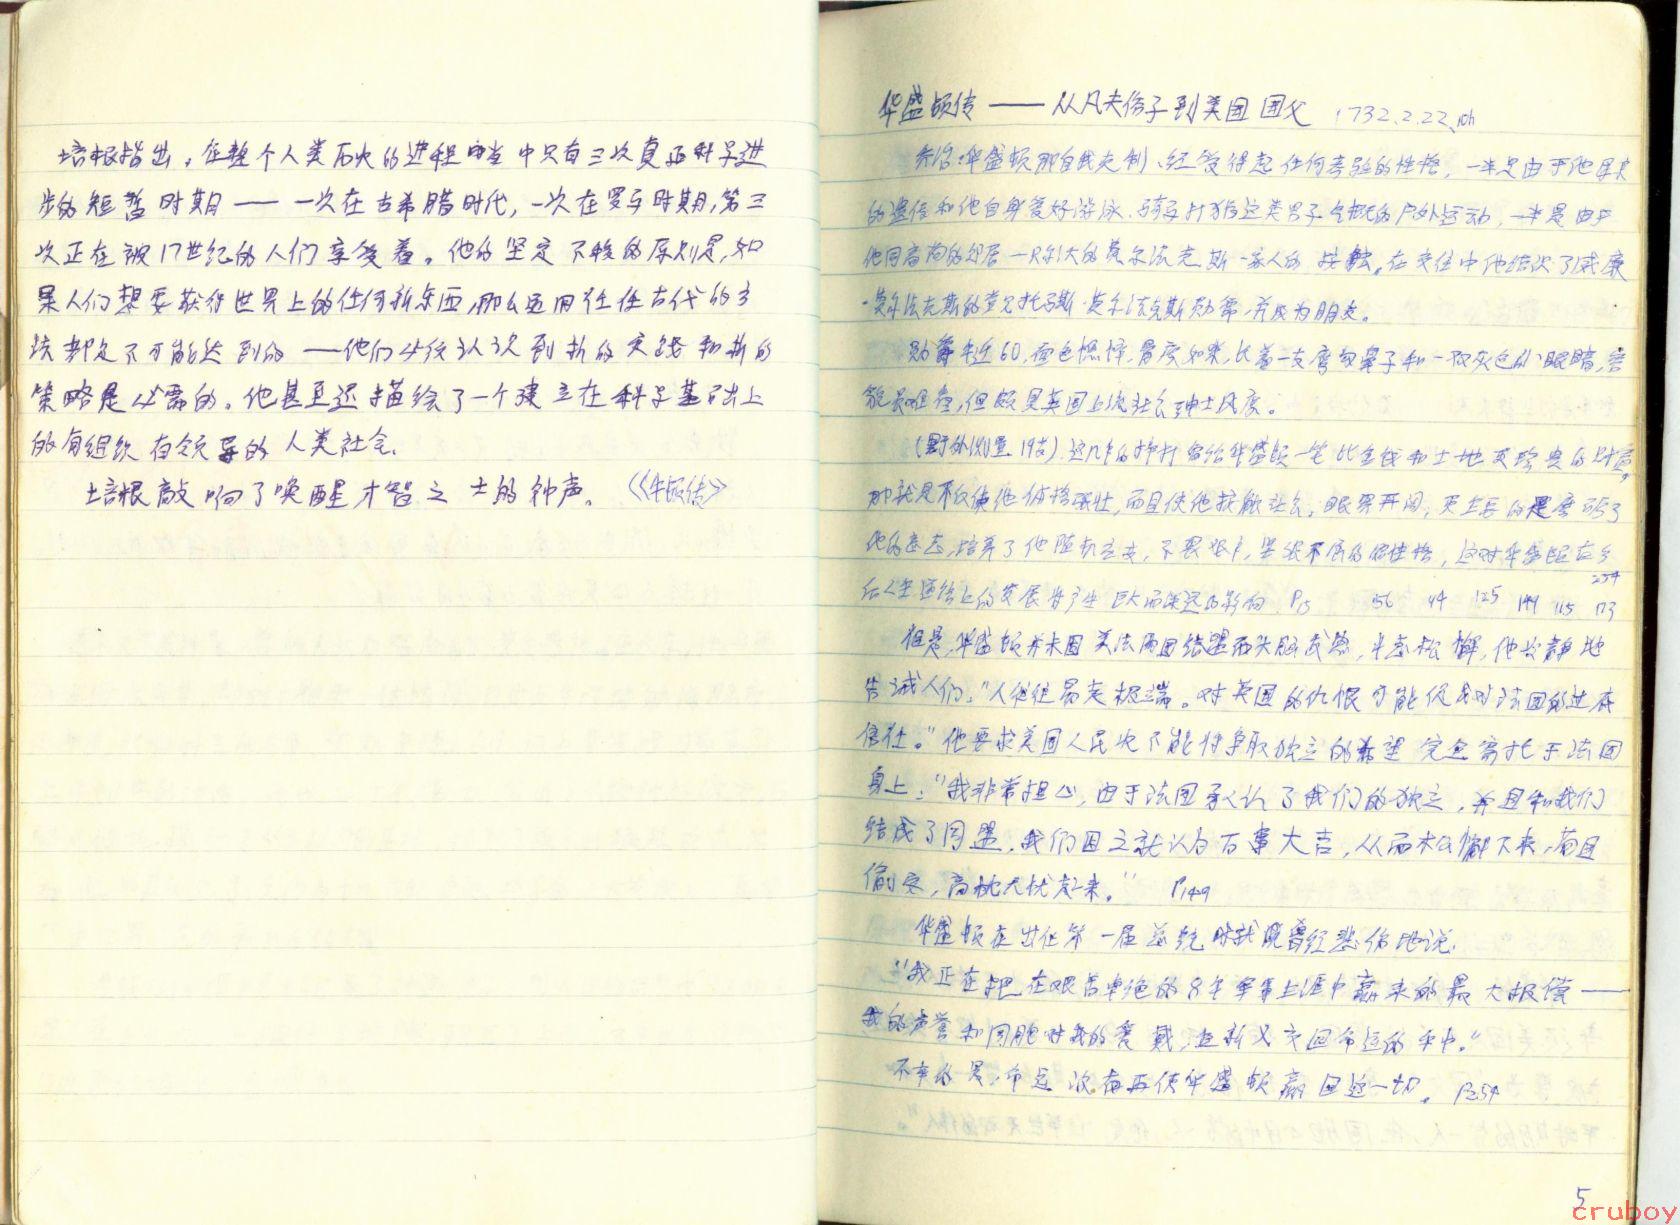 培根指出，在整个人类历史的进程当中只有三次真正科学进
步的短暂时期——一次在古希腊时代，一次在罗马时期，第三
次正在被17世纪的人们享受着。他的坚定不移的原则是，如
果人们想要获得世界上的任何新东西，那么运用任何古代的方
法都是不可能达到的——他们必须认识到新的实践和新的
策略是必需的。他甚至还描绘了一个建立在科学基础上
的有组织有领导的人类社会。
培根敲响了唤醒才智之士的钟声。《牛顿传》
华盛顿传——从凡夫俗子到美国国父 1732.2.22
乔治·华盛顿那自我克制、经受得起任何考验的性格，一半是由于他
的遗传和他自身爱好游泳、骑马打猎这类男子气概的户外运动，一半是由于
他同高尚的邻居——的费尔法克斯一家人的接触。在交往中他结识了威廉
·费尔法克斯的堂兄托马斯·费尔法克斯勋爵，并成为朋友。
勋爵年近60，面色憔悴，长着一支鹰勾鼻子和一双灰色的小眼睛，
但颇具英国上流社会绅士风度。
（野外测量 19岁）这几年的给华盛顿一笔比金钱和土地更珍贵的财富，
那就是不仅使他体格强壮，而且使他接触社会，眼界开阔，更主要的是磨砺了
他的意志，培养了他随机应变，不畏艰难，坚强不屈的性格，这对华盛顿在今
后人生道路上的发展产生巨大而深远的影响 P15 56 44 125 149 165 173 254
但是，华盛顿并未因美法两国结盟而头脑发热，斗志松懈，他冷静地
告诫人们：“人往往易走极端。对英国的仇恨可能促成对法国的过度
信任。”他要求美国人民决不能将争取独立的希望完全寄托于法国
身上：“我非常担心，由于法国承认了我们的独立，并且和我们
结成了同盟，我们因之就认为万事大吉，从而松懈下来，苟且
偷安，高枕无忧起来。” P149
华盛顿在出任第一届总统时就曾经悲伤地说：
“我正在把在艰苦卓绝的8年军事生涯中赢来的最大报偿——
我的声誉和同胞对我的爱戴，重新又交回命运的手中。”
不幸的是，命运没有再使华盛顿赢回这一切。P254
5
cruboy